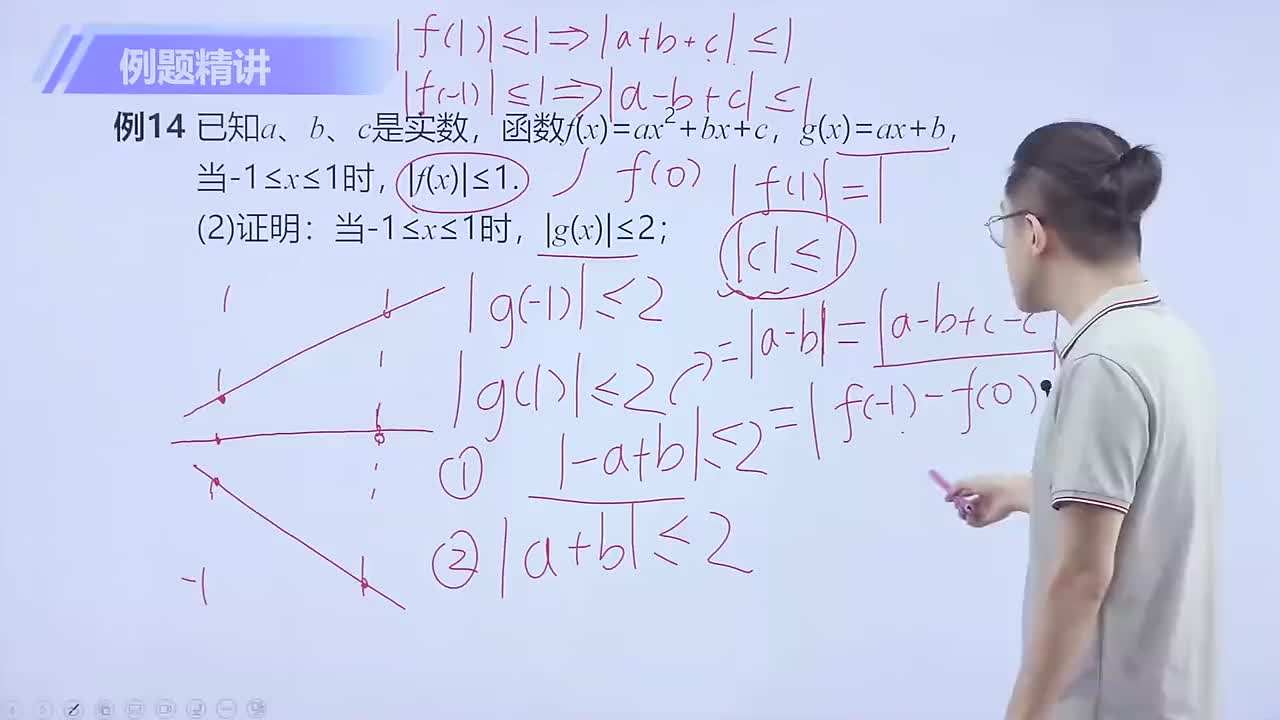 |f(1)|≤1⇒|a+b+c|≤1
例题精讲
|f(-1)|≤1⇒|a-b+c|≤1
例14 已知a、b、c是实数，函数f(x)=ax²+bx+c，g(x)=ax+b，
当-1≤x≤1时，|f(x)|≤1.
f(0) |f(1)|=1
(2)证明：当-1≤x≤1时，|g(x)|≤2；
|c|≤1
|g(-1)|≤2
=|a-b|=|a-b+c-c|
|g(1)|≤2
=|f(-1)-f(0)
① |-a+b|≤2
② |a+b|≤2
-1